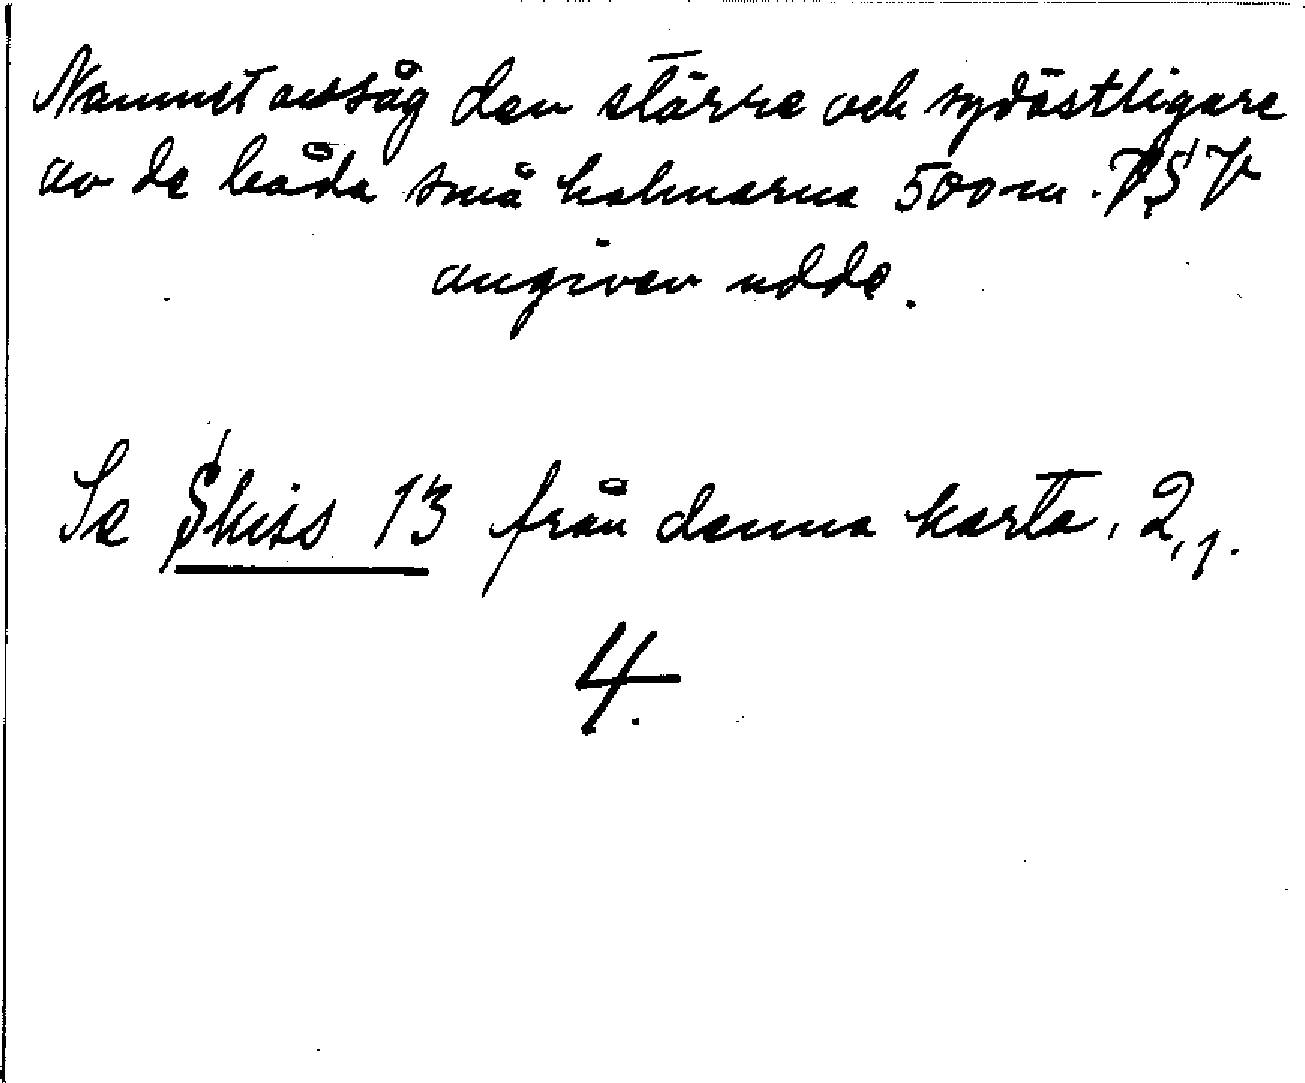 Namnet avsåg den större och sydöstligare
av de båda små holmarna 500 m. VSV
angiven udde.
Se Skiss 13 från denna karta, 2,1.
4.